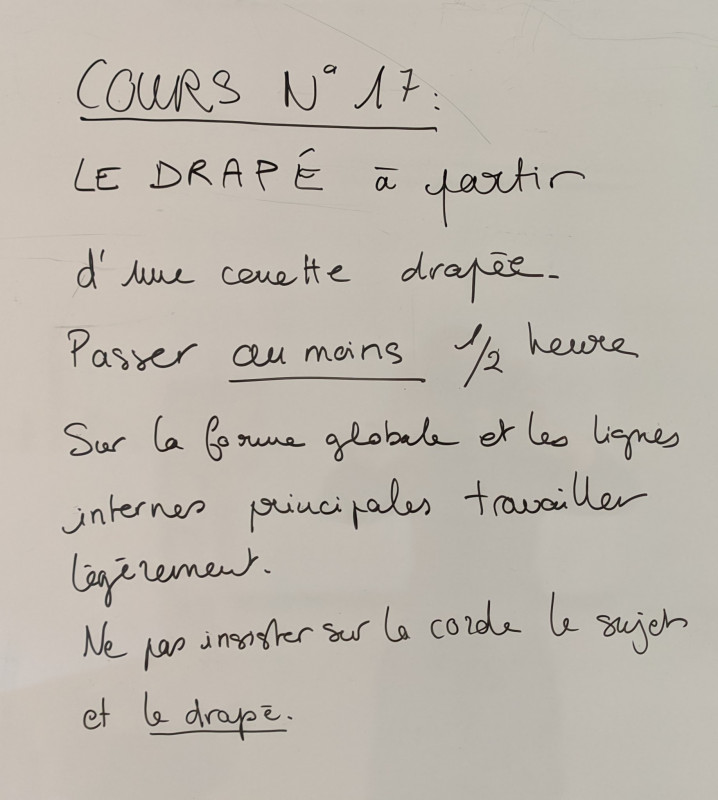 COURS N° 17:
LE DRAPÉ à partir
d'une couette drapée.
Passer au moins 1/2 heure
Sur la forme globale et les lignes
internes principales travailler
légèrement.
Ne pas insister sur la corde le sujet
et le drapé.